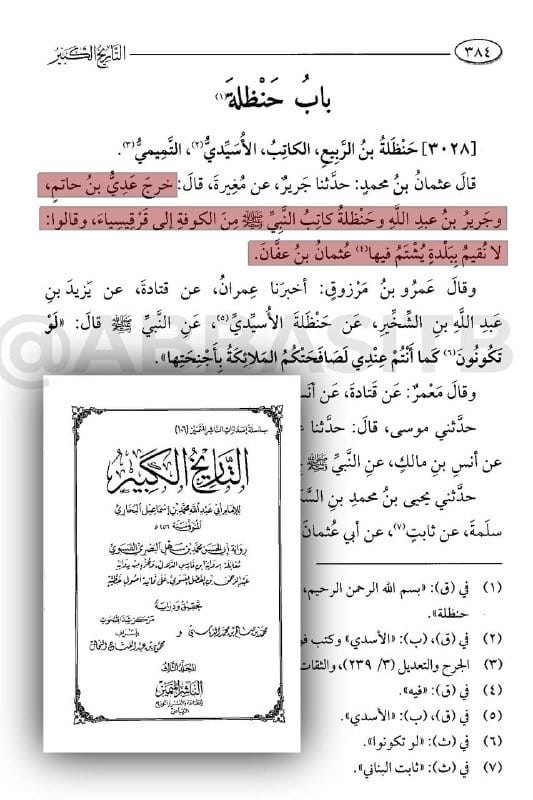 ٣٨٤
التاريخ الكبير
بابُ حَنْظلةَ(١)
[٣٠٢٨] حَنْظلةُ بنُ الرَّبيعِ، الكاتِبُ، الأُسَيِّديُّ(٢)، التَّمِيميُّ(٣).
قالَ عثمانُ بنُ محمدٍ: حدَّثنا جَريرٌ، عن مُغيرةَ، قالَ: خرجَ عَدِيُّ بنُ حاتمٍ،
وجَريرُ بنُ عبدِ اللَّهِ وحَنظلةُ كاتِبُ النَّبيِّ ﷺ مِنَ الكوفةِ إلى قَرْقِيسِياءَ، وقالوا:
لا نُقيمُ بِبَلْدةٍ يُشْتَمُ فيها(٤) عُثمانُ بنُ عفَّانَ.
وقالَ عَمرُو بنُ مَرْزوقٍ: أخبرَنا عِمرانُ، عن قتادةَ، عن يَزيدَ بنِ
عبدِ اللَّهِ بنِ الشِّخِّيرِ، عَن حَنْظلةَ الأُسيِّديِّ(٥)، عَنِ النَّبيِّ ﷺ قالَ: «لَوْ
تَكُونُونَ(٦) كَما أَنْتُمْ عِنْدِي لَصَافَحَتْكُمُ المَلَائِكَةُ بِأَجْنِحَتِها».
وقالَ مَعْمَرٌ: عَن قَتادةَ، عَن أنَسٍ
حدَّثني موسى، قالَ: حدَّثنا
عن أنسِ بنِ مالكٍ، عنِ النَّبيِّ ﷺ
حدَّثني يحيى بنُ محمدِ بنِ السَّكَ
سلَمةَ، عن ثابتٍ(٧)، عن أبي عُثمانَ
(١) في (ق): «بسم الله الرحمن الرحيم،
حنظلة».
(٢) في (ق)، (ب): «الأسدي» وكتب فو
(٣) الجرح والتعديل (٣/ ٢٣٩)، والثقات
(٤) في (ق): «فيه».
(٥) في (ق)، (ب): «الأسدي».
(٦) في (ث): «لو تكونوا».
(٧) في (ث): «ثابت البناني».
سلسلة إصدارات الناشر المتميز (١٠٦)
التاريخ الكبير
للإمام أبي عبد الله محمد بن إسماعيل البخاري
المتوفى سنة ٢٥٦هـ
رواية أبي الحسن محمد بن سهل البصري النسوي
تحقيق ودراسة
محمد بن صالح بن محمد الدباسي
و
المجلد الثالث
الناشر المتميز
للطباعة والنشر والتوزيع
الرياض